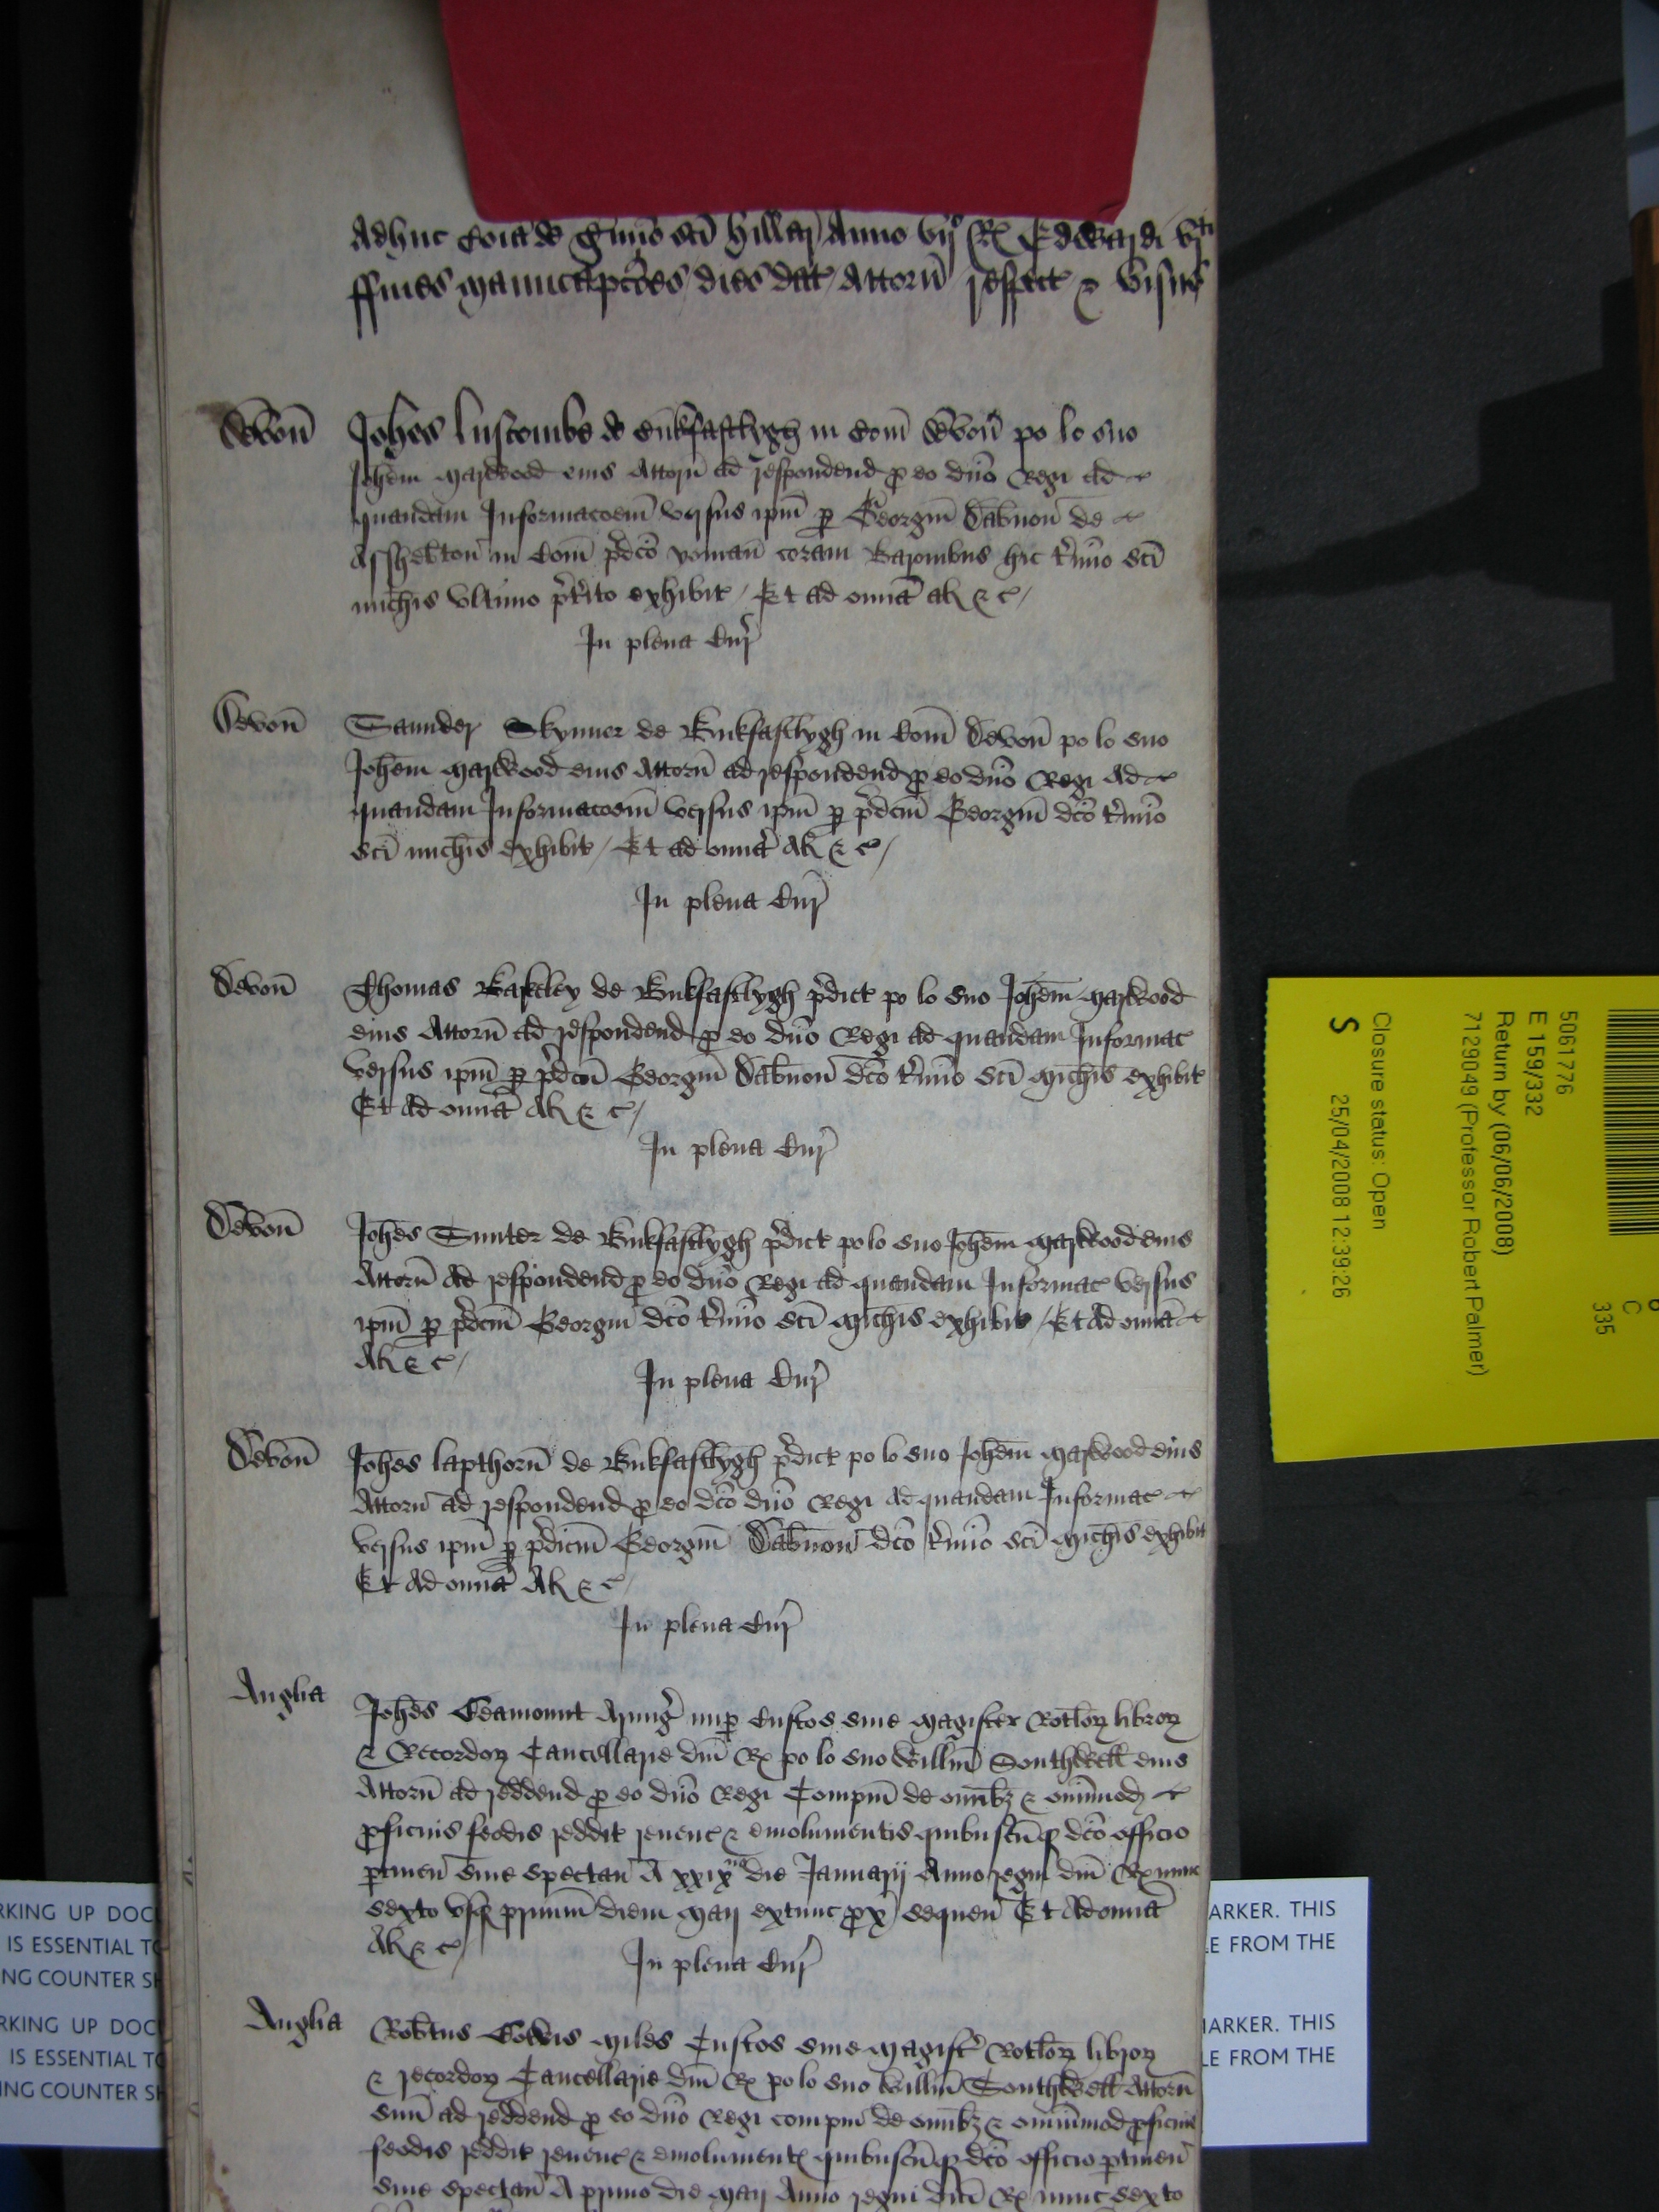 Adhuc Coia de Termio sci Hillarij Anno vijo Rx Edwardi vjti
ffines manucapcoes dies dat Attorn respect & visus
Devon
Johes Luscombe de Bukfastlygh in Com Devon po lo suo
Johem Marwood eius Attorn ad respondend p eo dno Regi ad
quandam Informacoem versus ipm p Georgm Dabnon de
Asshebton in Com pdco yoman coram Baronibus hic termio sci
michis ultimo pterito exhibit / Et ad omia al & c /
In plena Cur
Devon
Saunder Skynner de Bukfastlygh in Com Devon po lo suo
Johem Marwood eius Attorn ad respondend p eo dno Regi Ad
quandam Informacoem versus ipm p pdcm Georgm dco termio
sci michis exhibit / Et ad omia Al & c /
In plena Cur
Devon
Thomas de Bukfastlygh pdict po lo suo Johem Marwood
eius Attorn ad respondend p eo dno Regi ad quandam Informac
versus ipm p pdcm Georgm Dabnon dco termio sci Michis exhibit
Et ad omia Al & c /
In plena Cur
Devon
Johes de Bukfastlygh pdict po lo suo Johem Marwood eius
Attorn Ad respondend p eo dno Regi ad quandam Informac versus
ipm p pdcm Georgm dco termio sci Michis exhibit / Et Ad omia
Al & c /
In plena Cur
Devon
Johes Lapthorn de Bukfastlygh pdict po lo suo Johem Marwood eius
Attorn ad respondend p eo dco dno Regi Ad quandam Informac
versus ipm p pdictm Georgm Dabnon dco termio sci Michis exhibit
Et Ad omia Al & c
In plena Cur
Anglia
Johes Beamount Armig nup Custos sive Magister Rotlor libror
& Recordor Cancellarie dni Rx po lo suo Willm Southwell eius
Attorn ad reddend p eo dno Regi Compm de omibz & omimod
pficuis feodis reddit revenc & emolumentis quibuscuq dco officio
ptinen sive spectan A xxixo die Januarij Anno regni dni Rx nunc
sexto usq primum diem Maij extunc px sequen Et Ad omia
Al & c /
In plena Cur
Anglia
Robtus Bowis Miles Custos sive Magistr Rotlor libror
& recordor Cancellarie dni Rx po lo suo Willm Southwell Attorn
suu ad reddend p eo dno Regi compm de omibz & omimod pficuis
feodis reddit revenc & emolument quibuscuq dco officio ptinen
sive spectan A primo die Maij Anno regni dicti Rx nunc sexto
5061776
E 159/332
Return by (06/06/2008)
7129049 (Professor Robert Palmer)
Closure status: Open
S 25/04/2008 12:39:26
C
335
RKING UP DOC
IS ESSENTIAL TO
NG COUNTER SH
RKING UP DOC
IS ESSENTIAL TO
ING COUNTER SH
ARKER. THIS
LE FROM THE
MARKER. THIS
LE FROM THE